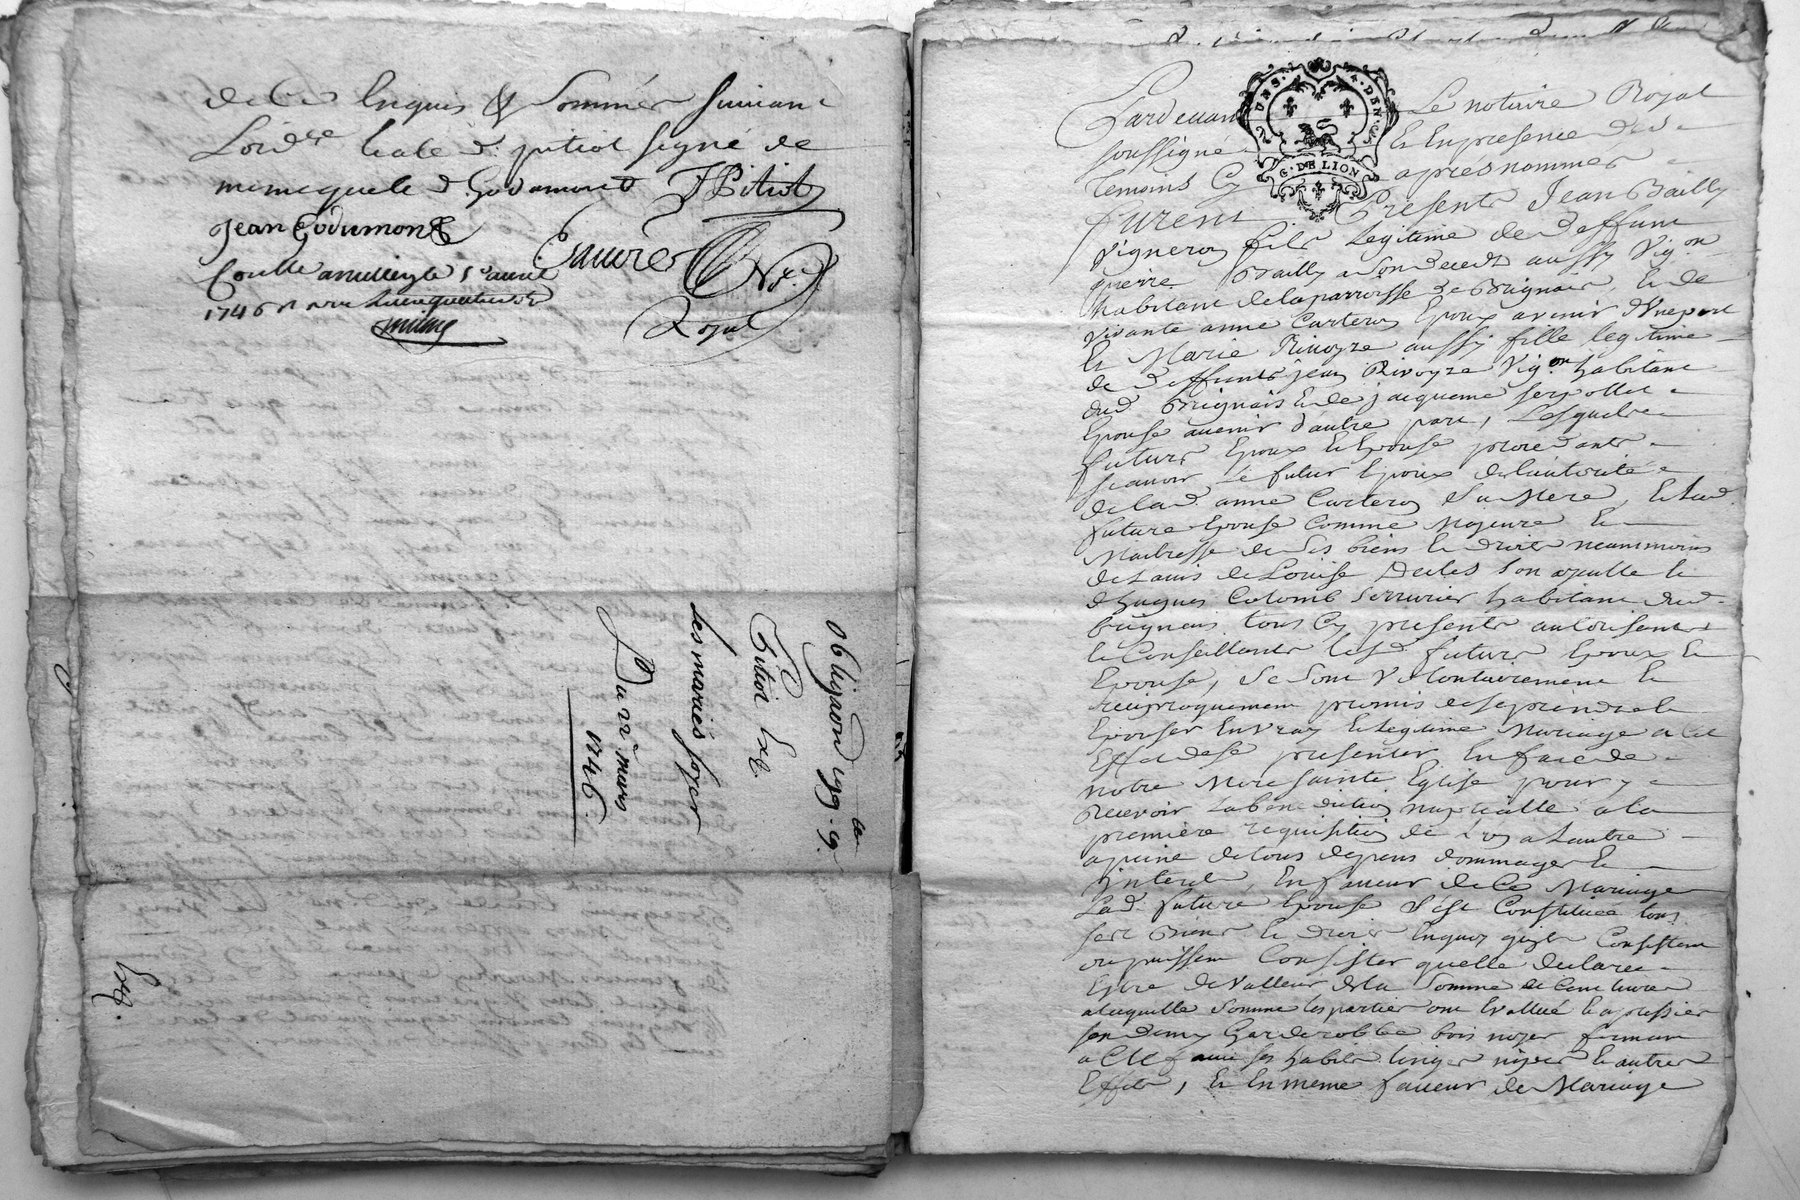 de ce enquis & sommés suivant
Lord.ce hormis d. pitiot signé de
même que le d. Godumond JPitiot
Jean Godumond
Sauvrer Nre.
Royal
1746
obligaon
Pitiot
Les mariés soyer
Du 22e mars
1746.
2 SOLS. 4 DEN.
G. DE LION
Pardevant Le notaire Royal
soussigné Et En presence des
temoins Cy après nommés
furent Presents Jean Bailly
Vigneron fils Legitime de deffunt
pierre Bailly a son decedz aussy Vig.on
habitant de la parroisse de Brignais, Et de
Vivante anne Carteron Epoux avenir d'Une part
Et Marie Rivoyre aussy fille legitime
de deffunts jean Rivoyre Vig.on habitant
dud. Brignais Et de jacqueme serpollet
Epouse avenir d'autre part, Lesquels
futurs Epoux Et Epouse procedants
scavoir Le futur Epoux de l'autorité
de lad. anne Carteron Sa Mere, Et lad.
future Epouse Comme Majeure Et
Maitresse de Ses biens Et droits neammoins
de L'avis de Louise Son ayeulle Et
d'hugues Colomb Serrurier habitant dud.
brignais tous Cy presents autorisants
Et Conseillants lesd. futurs Epoux Et
Epouse, Se Sont Volontairement Et
reciproquement promis de se prendre Et
Epouser En Vray Et Legitime Mariage a Cet
Effet de se presenter En face de
notre Mere sainte Eglise pour y
recevoir La bénédiction nuptialle a la
premiere requisition de L'un a L'autre
a peine de tous depens dommages Et
Interets, En faveur de Ce Mariage
Lad. future Epouse s'est Constituée tous
ses Biens Et droits En quoy qu'ils Consistent
ou puissent Consister quelle declare
Estre de Valleur de la Somme de Cent livres
a laquelle Somme les parties ont Evallué
garderobbe bois noyer fermant
a Clef ses habits linges nipes Et autres
Effets, Et En meme faveur de Mariage